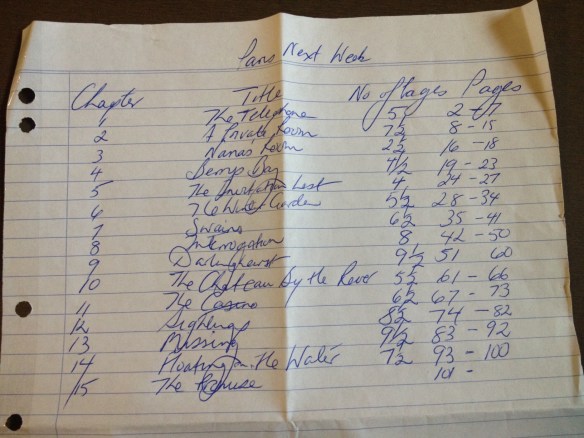 Paris Next Week
Chapter Title No of Pages Pages
1 The Telephone 5½ 2 - 7
2 A Private Room 7½ 8 - 15
3 Nanas Room 2½ 16 - 18
4 Day 4½ 19 - 23
5 The Invitation List 4 24 - 27
6 The Winter Garden 5½ 28 - 34
7 Swains 6½ 35 - 41
8 Interrogation 8 42 - 50
9 Darlinghurst 9½ 51 60
10 The Chateau by the River 5½ 61 - 66
11 The Casino 6½ 67 - 73
12 Sightings 8½ 74 - 82
13 Missing 9½ 83 - 92
14 Floating in the Water 7½ 93 - 100
15 The Promise 101 -